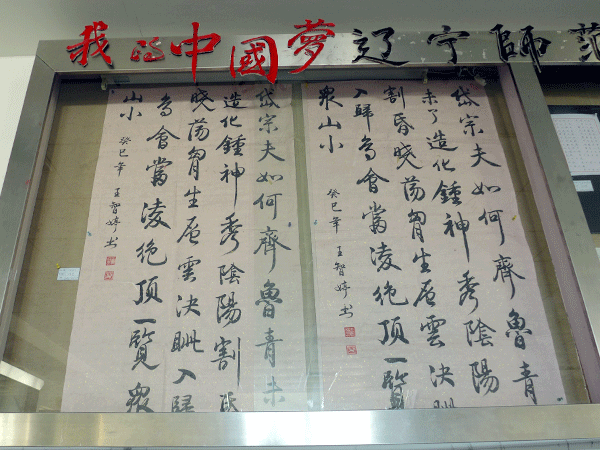 我的中國夢辽宁師范
岱宗夫如何齊魯青
未了造化鍾神秀陰陽
割昏晓荡胷生层雲決眦
入歸鸟會當凌绝頂一覽
眾山小
癸巳年王智婷书
岱宗夫如何齊魯青未
了造化鍾神秀陰陽割昏
晓荡胷生层雲決眦入歸
鸟會當凌绝頂一覽眾
山小
癸巳年王智婷书